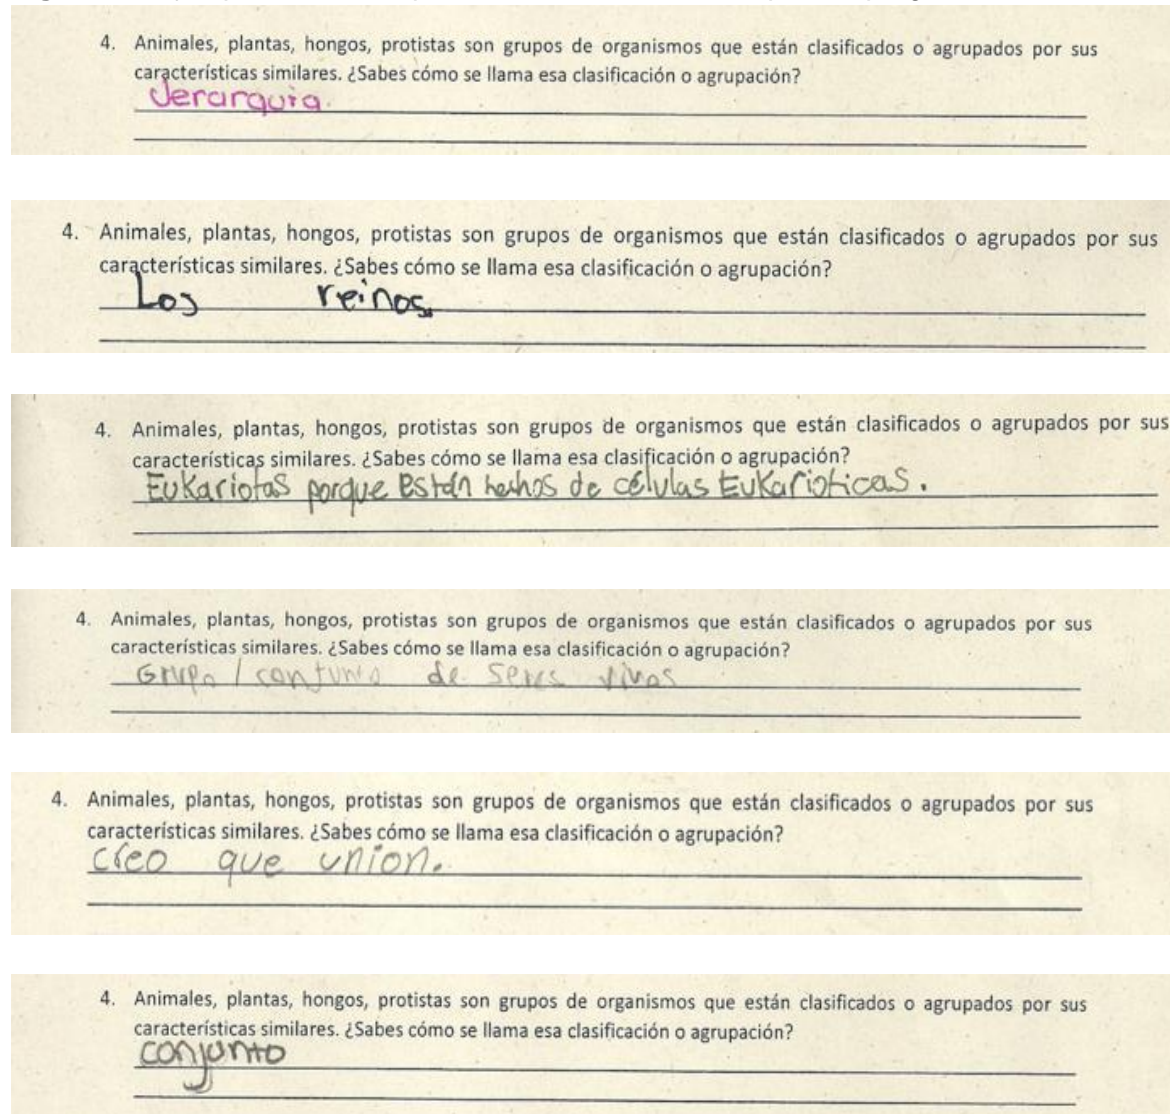 4. Animales, plantas, hongos, protistas son grupos de organismos que están clasificados o agrupados por sus
características similares. ¿Sabes cómo se llama esa clasificación o agrupación?
Jerarquia.
4. Animales, plantas, hongos, protistas son grupos de organismos que están clasificados o agrupados por sus
características similares. ¿Sabes cómo se llama esa clasificación o agrupación?
Los reinos.
4. Animales, plantas, hongos, protistas son grupos de organismos que están clasificados o agrupados por sus
características similares. ¿Sabes cómo se llama esa clasificación o agrupación?
Eukariotas porque están hechos de células Eukarioticas.
4. Animales, plantas, hongos, protistas son grupos de organismos que están clasificados o agrupados por sus
características similares. ¿Sabes cómo se llama esa clasificación o agrupación?
Grupo / conjunto de seres vivos
4. Animales, plantas, hongos, protistas son grupos de organismos que están clasificados o agrupados por sus
características similares. ¿Sabes cómo se llama esa clasificación o agrupación?
creo que union.
4. Animales, plantas, hongos, protistas son grupos de organismos que están clasificados o agrupados por sus
características similares. ¿Sabes cómo se llama esa clasificación o agrupación?
conjunto